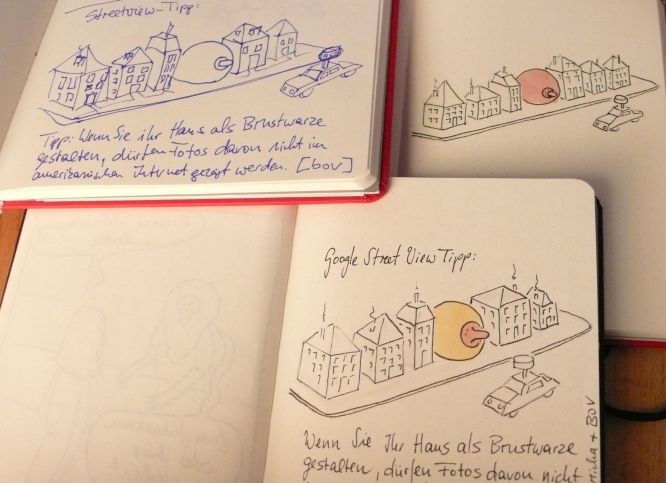 Streetview-Tipp:
Tipp: Wenn Sie ihr Haus als Brustwarze
gestalten, dürfen Fotos davon nicht im
amerikanischen Internet gezeigt werden. [bov]
Google Street View Tipp:
Wenn Sie Ihr Haus als Brustwarze
gestalten, dürfen Fotos davon nicht
Micha + BOV